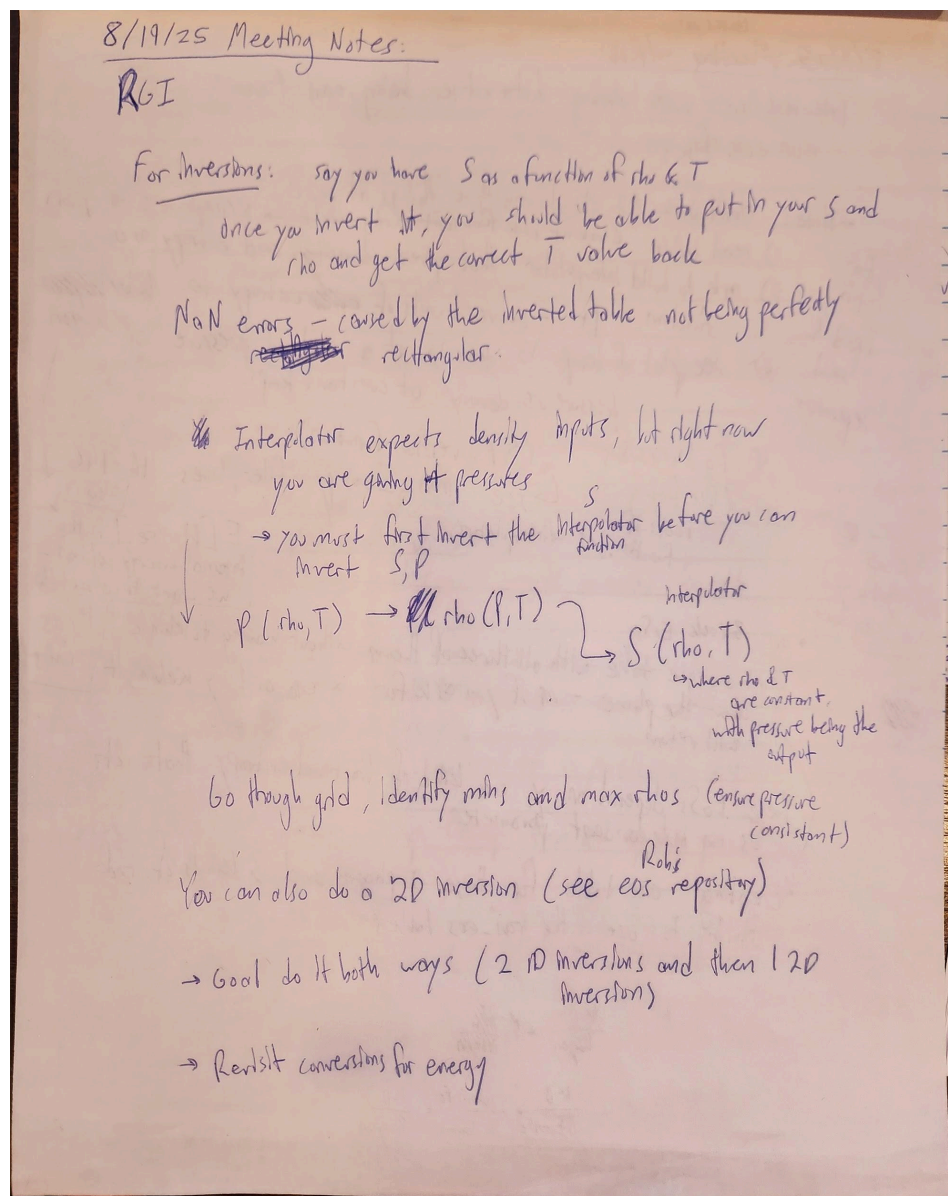 8/19/25 Meeting Notes:
RGI
For inversions: say you have S as a function of rho & T
once you invert it, you should be able to put in your S and
rho and get the correct T value back
NaN errors – caused by the inverted table not being perfectly
rectangular.
Interpolator expects density inputs, but right now
you are giving it pressures
S
→ you must first invert the interpolator before you can
function
invert S, P
interpolator
P (rho, T) → rho (P, T) → S (rho, T)
↳ where rho & T
are constant,
with pressure being the
output
Go though grid, identify mins and max rhos (ensure pressure
consistant)
Rob's
You can also do a 2D inversion (see eos repository)
→ Goal do it both ways (2 1D inversions and then 1 2D
inversion)
→ Revisit conversions for energy